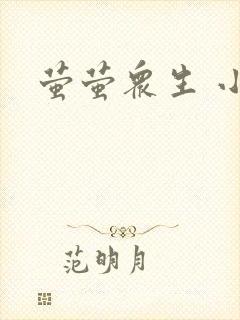 萤萤众生 小
范明月